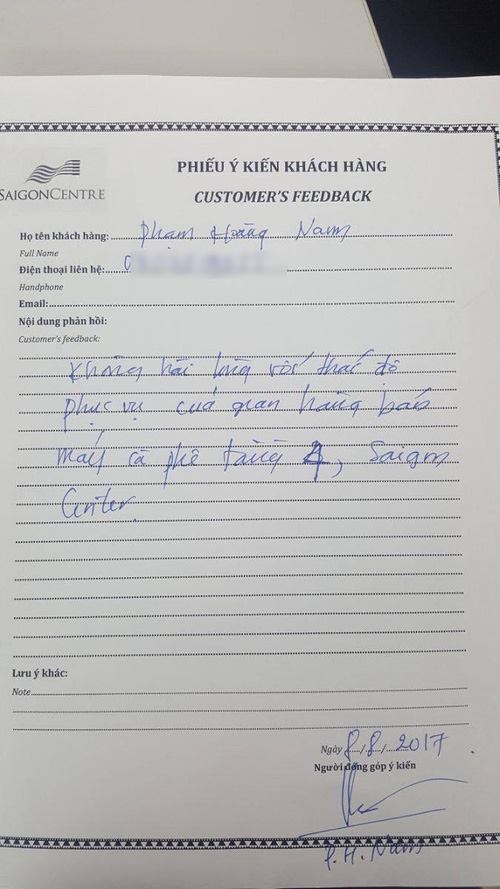 SAIGON CENTRE
PHIẾU Ý KIẾN KHÁCH HÀNG
CUSTOMER'S FEEDBACK
Họ tên khách hàng: Phạm Hoàng Nam
Full Name
Điện thoại liên hệ: 0
Handphone
Email:
Nội dung phản hồi:
Customer's feedback:
Không hài lòng với thái độ
phục vụ của gian hàng bán
máy cà phê tầng 4, Saigon
Center
Lưu ý khác:
Note
Ngày 8/8/2017
Người đóng góp ý kiến
P.H. Nam